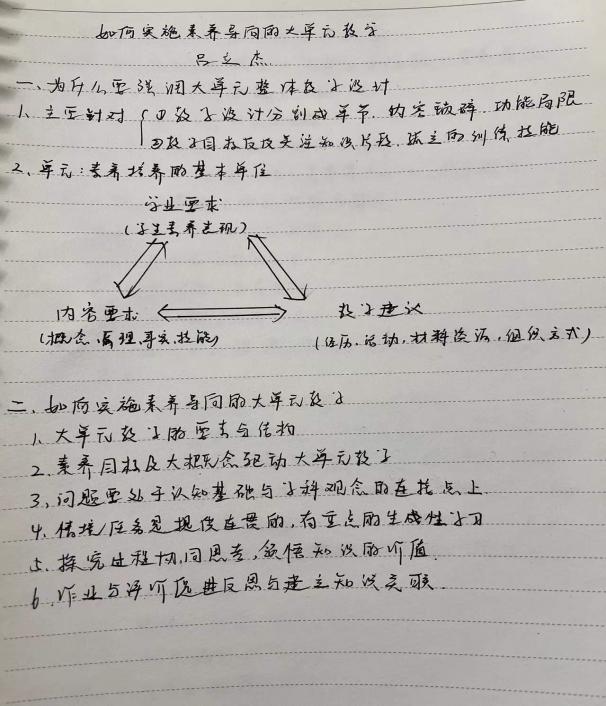 如何实施素养导向的大单元教学
吕立杰
一、为什么要强调大单元整体教学设计
1、主要针对 ①教学设计分割成单节,内容琐碎,功能局限
②教学目标仅仅关注知识片段,孤立的训练技能
2、单元:素养培养的基本单位
学业要求
(学生素养表现)
内容要求 教学建议
(概念、原理、事实、技能) (经历、活动、材料资源、组织方式)
二、如何实施素养导向的大单元教学
1、大单元教学的要素与结构
2、素养目标及大概念驱动大单元教学
3、问题要处于认知基础与学科观念的连接点上
4、情境/任务是提供连贯的,有重点的生成性学习
5、探究过程协同思考,领悟知识的价值.
6、作业与评价促进反思与建立知识关联.